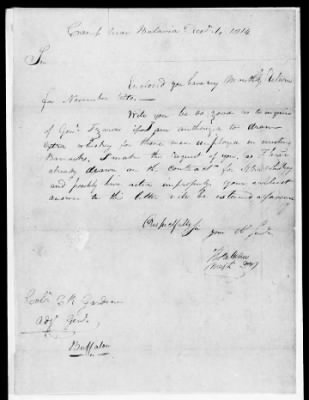 Camp near Batavia Decr. 4, 1814
Sir
Enclosed you have my Monthly Return
for November
Will you be so good as to enquire
of Genl. Izard if I am authorized to draw
extra whiskey for those men employed in
Barracks, I make the request of you, as I have
already drawn on the Contractor for
and possibly have acted improperly your earliest
answer to this letter will be esteemed a favour
Respectfully Sir
your Ob. Servt.
Colo. C K Gardner
Adj. Genl.
Buffaloe